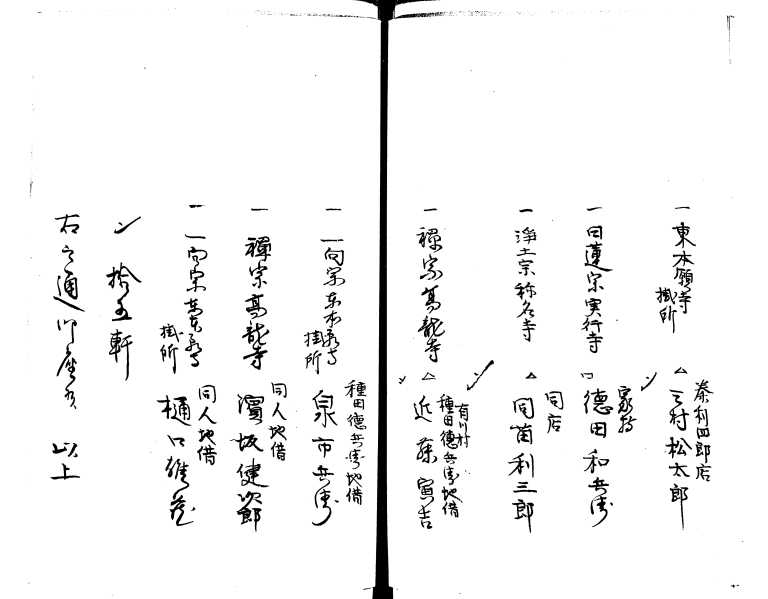 一 東本願寺
掛所
秦利四郎店
△ 三村松太郎
一 日蓮宗実行寺
家持
□ 徳田和兵衛
一 浄土宗称名寺
同店
△ 同苗利三郎
一 禅宗高龍寺
有川村
種田徳兵衛地借
△ 近藤寅吉
一 一向宗東本願寺
掛所
種田徳兵衛地借
泉市兵衛
一 禅宗高龍寺
同人地借
濱坂健次郎
一 一向宗東本願寺
掛所
同人地借
樋口雄蔵
〆 拾五軒
右之通御座候 以上